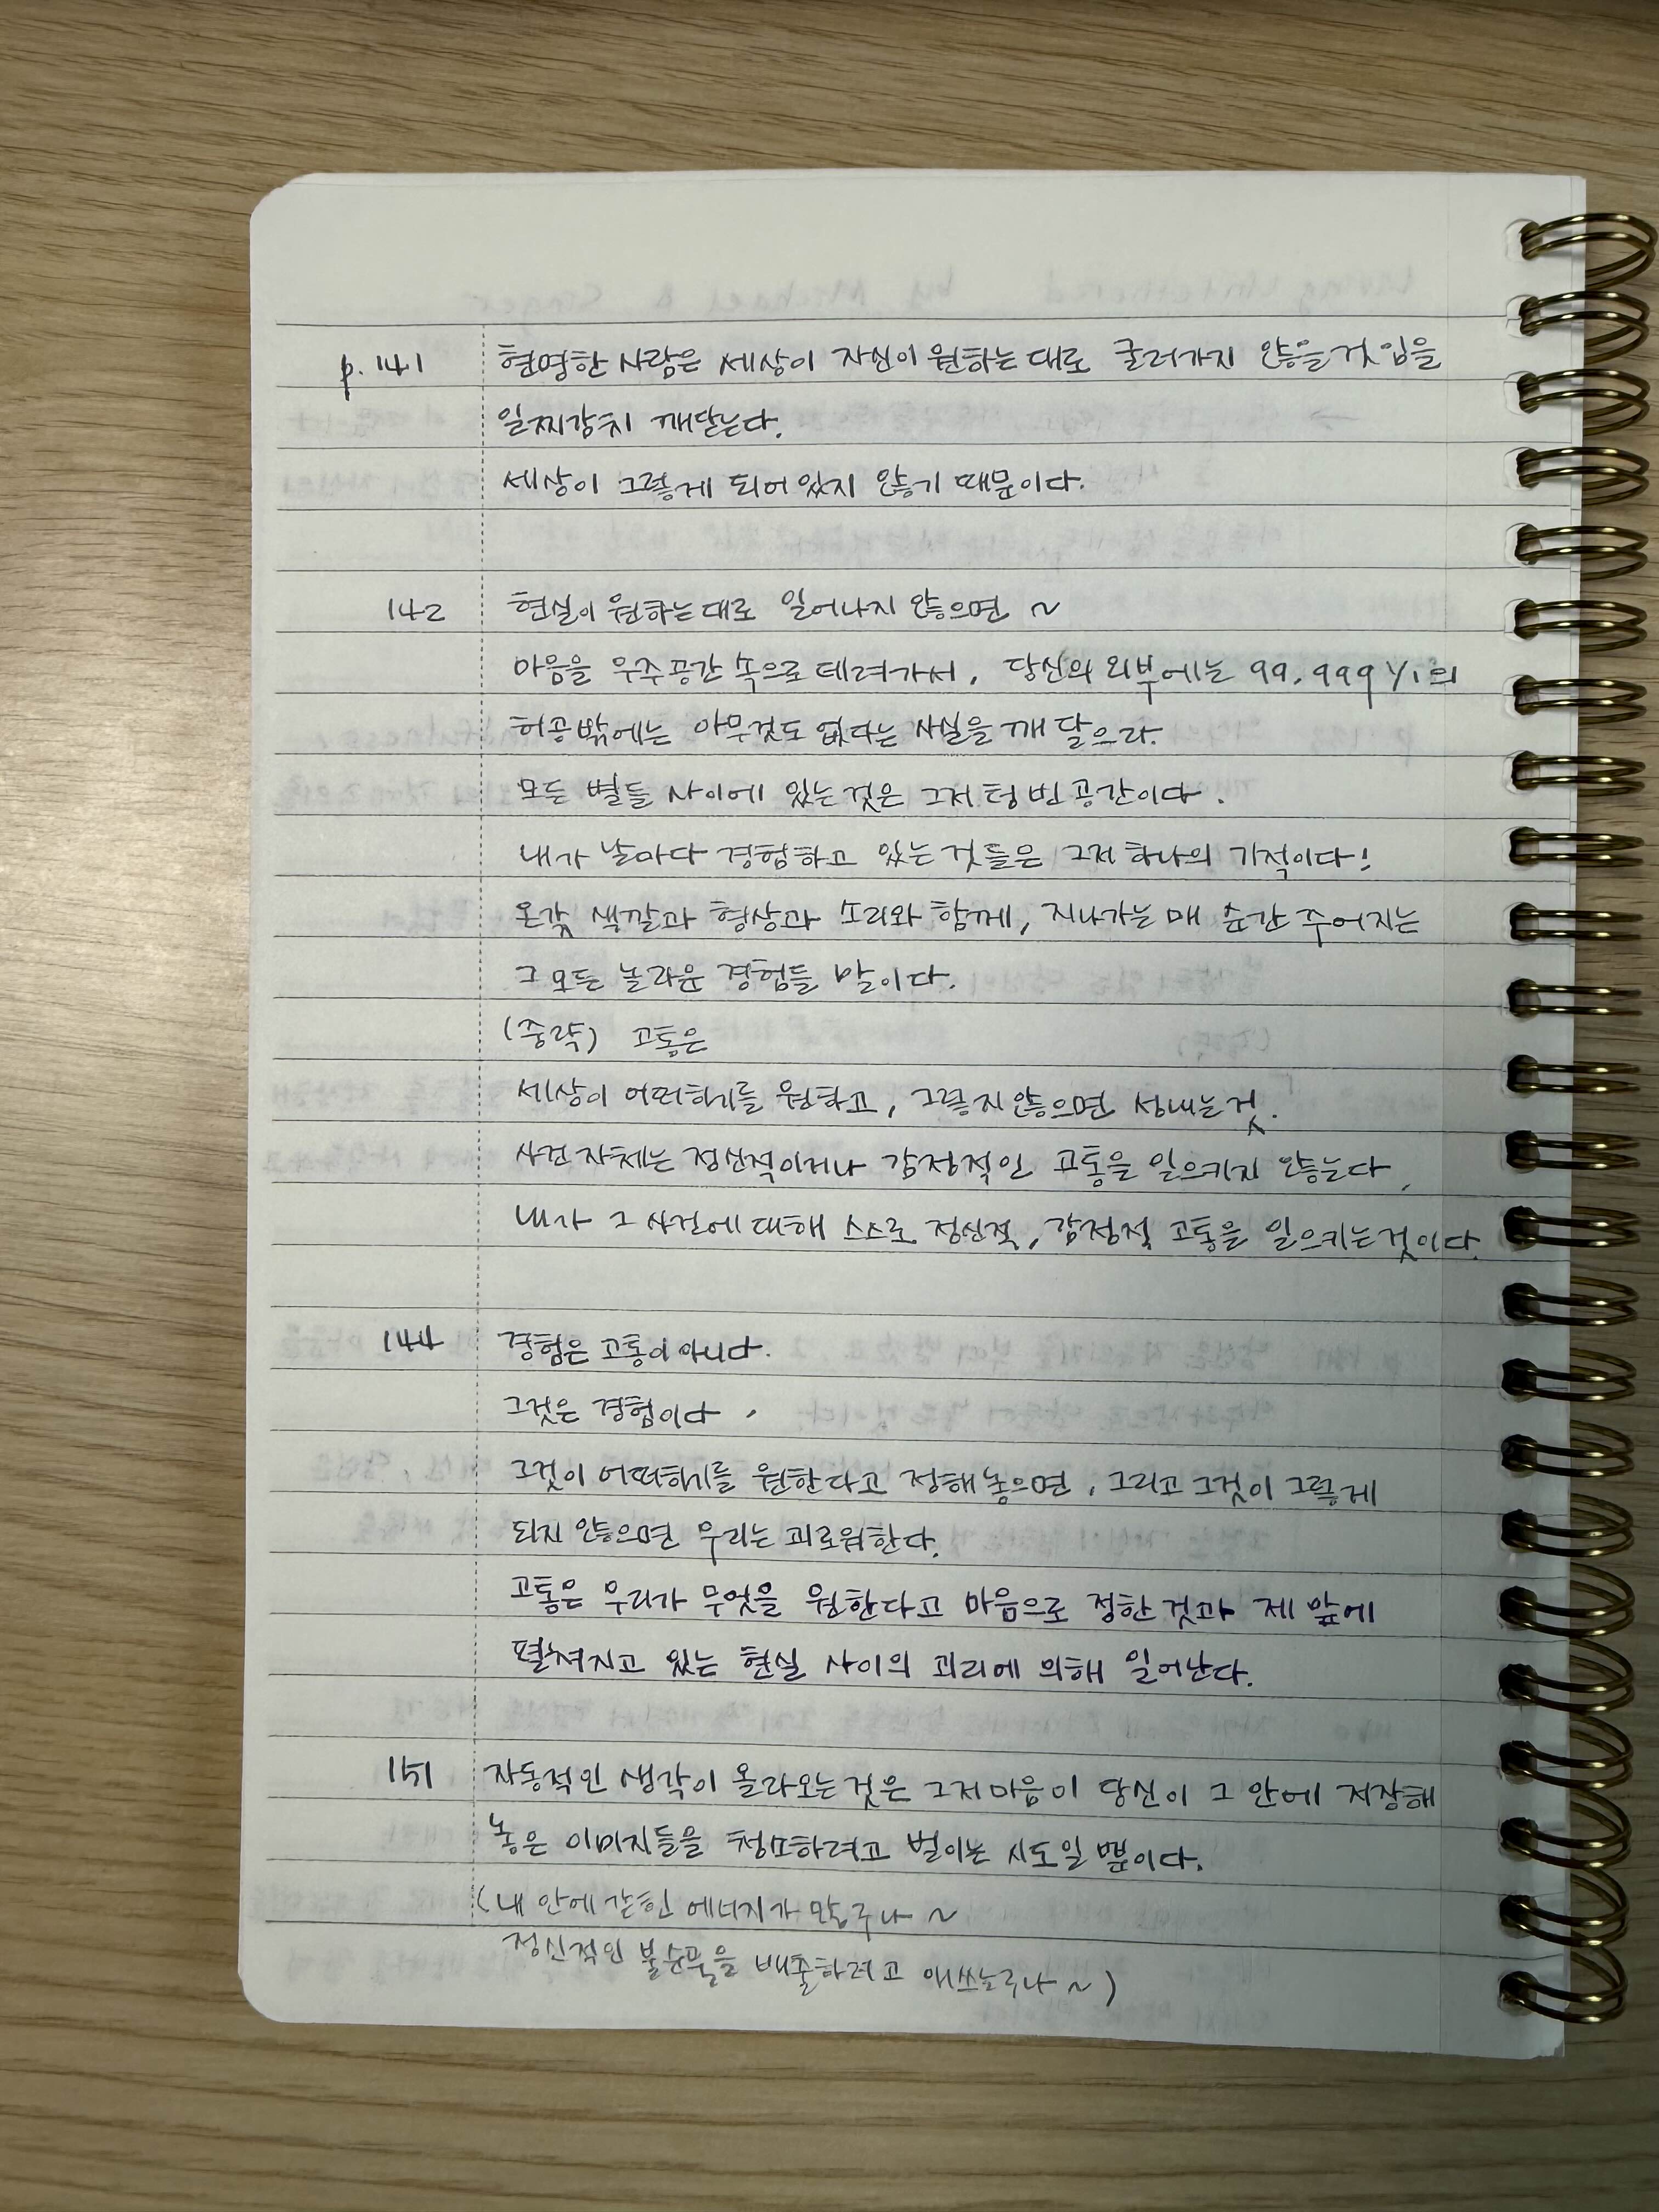 p. 141 현명한 사람은 세상이 자신이 원하는 대로 굴러가지 않을 것임을
일찌감치 깨닫는다.
세상이 그렇게 되어 있지 않기 때문이다.
142 현실이 원하는 대로 일어나지 않으면 ~
마음을 우주 공간 속으로 데려가서, 당신의 외부에는 99.999%의
허공밖에는 아무것도 없다는 사실을 깨달으라.
모든 별들 사이에 있는 것은 그저 텅 빈 공간이다.
내가 날마다 경험하고 있는 것들은 그저 하나의 기적이다!
온갖 색깔과 형상과 소리와 함께, 지나가는 매 순간 주어지는
그 모든 놀라운 경험들 말이다.
(중략) 고통은
세상이 어떠하기를 원하고, 그렇지 않으면 성내는 것.
사건 자체는 정신적이거나 감정적인 고통을 일으키지 않는다.
내가 그 사건에 대해 스스로 정신적, 감정적 고통을 일으키는 것이다.
144 경험은 고통이 아니다.
그것은 경험이다.
그것이 어떠하기를 원한다고 정해 놓으면, 그리고 그것이 그렇게
되지 않으면 우리는 괴로워한다.
고통은 우리가 무엇을 원한다고 마음으로 정한 것과 제 앞에
펼쳐지고 있는 현실 사이의 괴리에 의해 일어난다.
151 자동적인 생각이 올라오는 것은 그저 마음이 당신이 그 안에 저장해
놓은 이미지들을 청소하려고 벌이는 시도일 뿐이다.
(내 안에 갇힌 에너지가 많구나 ~
정신적인 불순물을 배출하려고 애쓰는구나 ~)